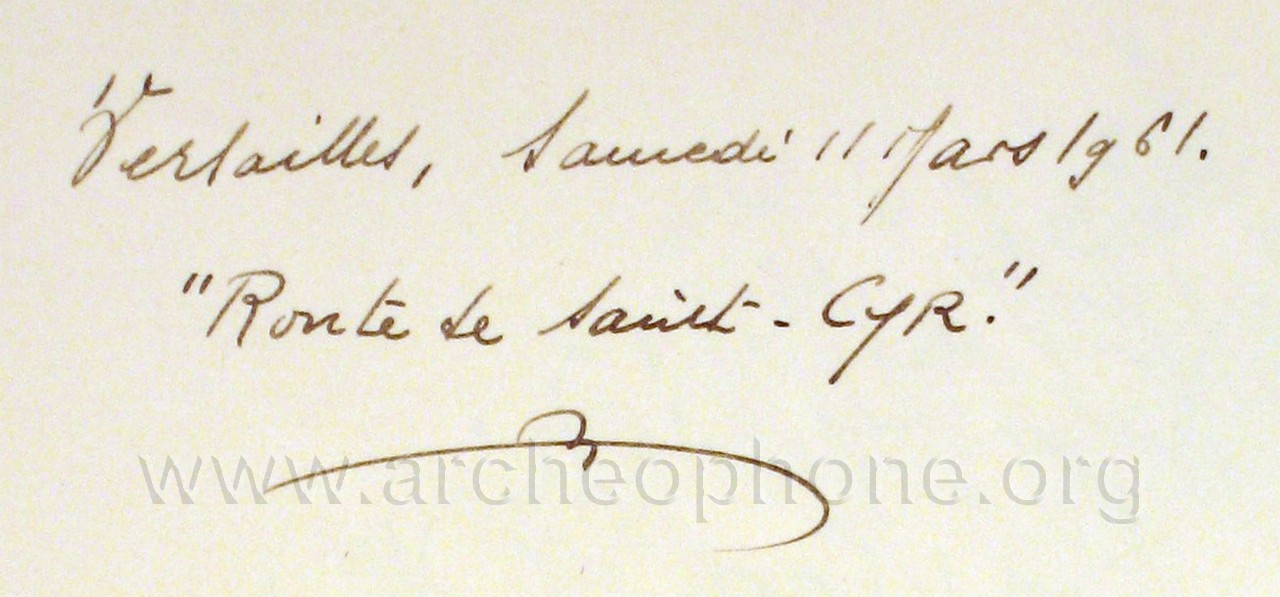 Versailles, Samedi 11 Mars 1961.
"Route de Saint-Cyr."
www.archeophone.org